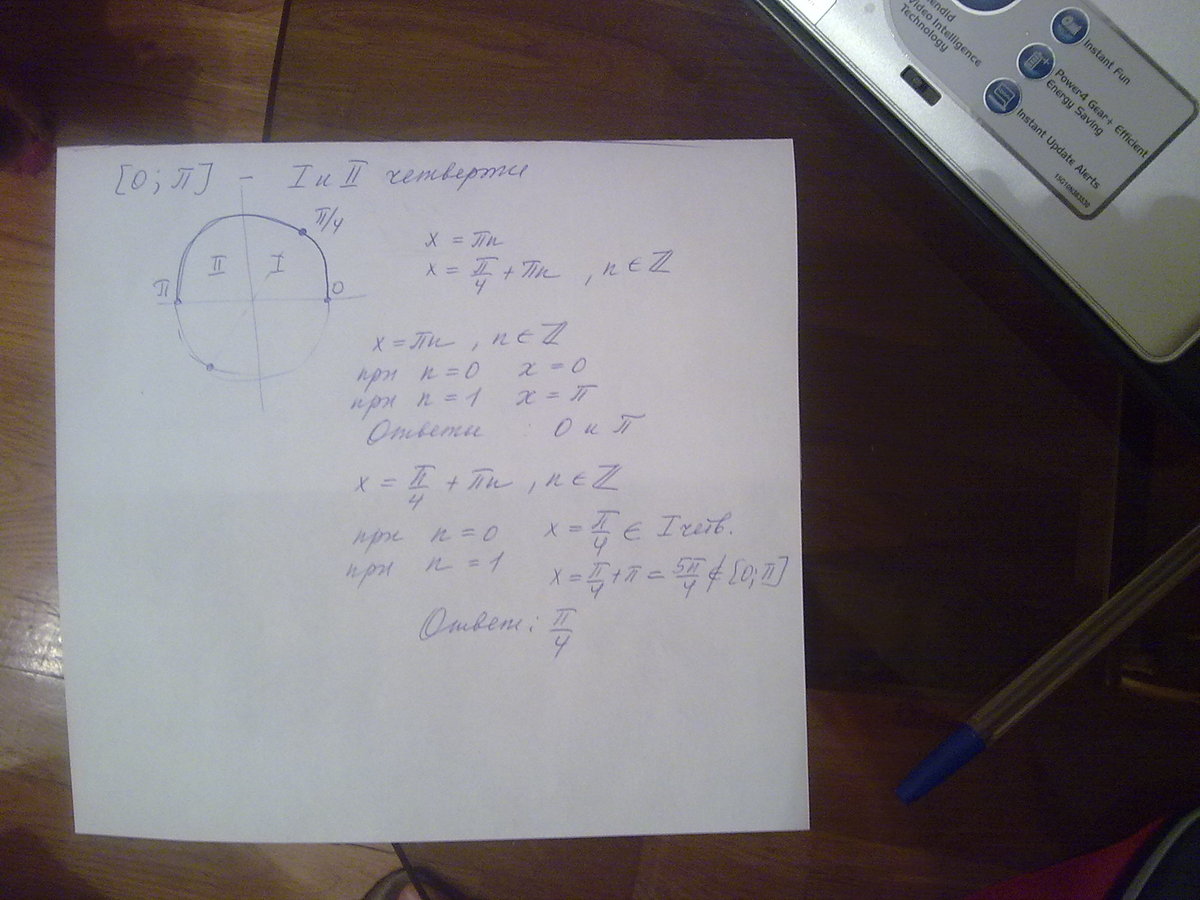 [0; π] - I и II четвертже
π/4
II I
π 0
x = πn
x = π/4 + πn , n ∈ ℤ
x = πn , n ∈ ℤ
при n = 0 x = 0
при n = 1 x = π
Ответы : 0 и π
x = π/4 + πn , n ∈ ℤ
при n = 0 x = π/4 ∈ I четв.
при n = 1 x = π/4 + π = 5π/4 ∉ [0; π]
Ответ: π/4
Video Intelligence
Technology
Instant Fun
Power4 Gear+ Efficient
Energy Saving
Instant Update Alerts